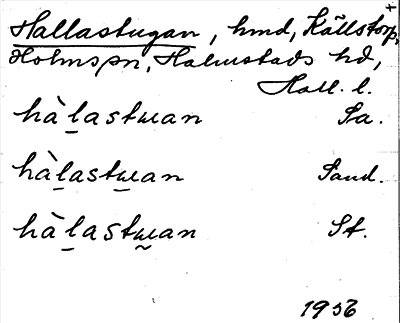 Hallastugan, hmd, Källstorp,
Holms sn, Halmstads hd,
Hall. l.
hàl̲astɯan Sa.
hàl̲astɯ̲an Sand.
hàl̲astɯ̰an St.
1956